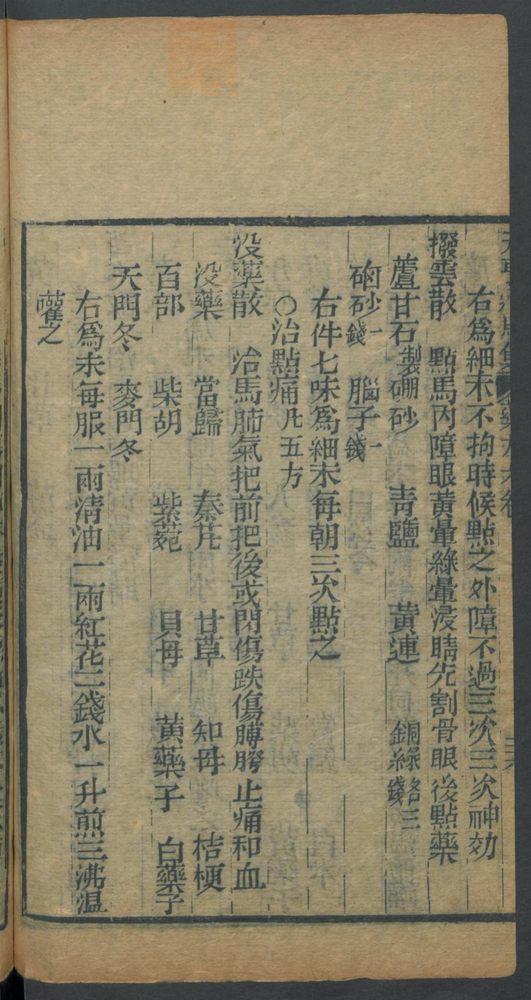 右爲細末不拘時候點之外障不過三次三次神効
撥雲散　點馬内障眼黄暈綠暈浸睛先割骨眼後點藥
蘆甘石製　硼砂　青鹽　黄連　銅綠各三錢
硇砂一錢　腦子一錢
右件七味爲細末每朝三次點之
〇治點痛凡五方
没藥散　治馬肺氣把前把後或閃傷跌傷膊胯止痛和血
没藥　當歸　秦艽　甘草　知母　桔梗
百部　柴胡　紫菀　貝母　黄藥子　白藥子
天門冬　麥門冬
右爲末每服一兩清油一兩紅花三錢水一升煎三沸温
灌之